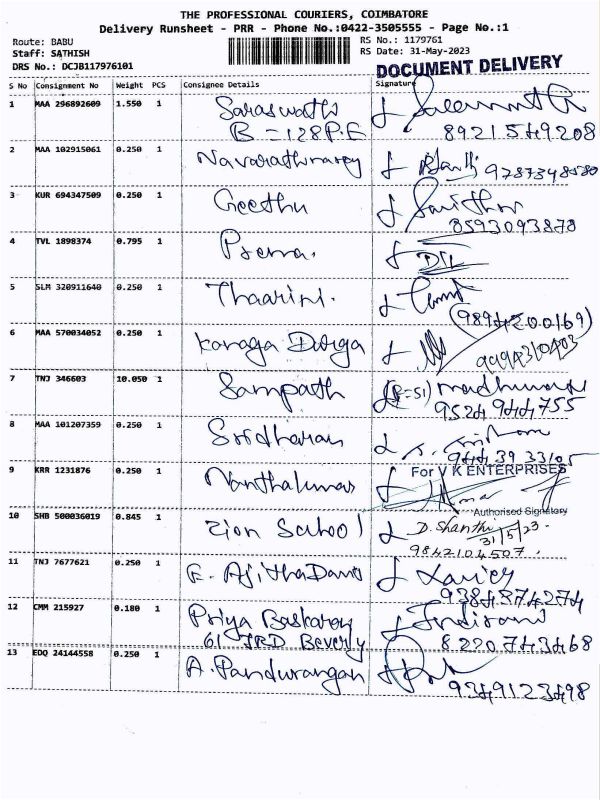 THE PROFESSIONAL COURIERS, COIMBATORE
Delivery Runsheet - PRR - Phone No.:0422-3505555 - Page No.:1
Route: BABU
Staff: SATHISH
DRS No.: DCJB117976101
RS No.: 1179761
RS Date: 31-May-2023
DOCUMENT DELIVERY
S No Consignment No Weight PCS Consignee Details Signature
1 MAA 296892609 1.550 1 Saraswathi
B = 128 P.E 8921549208
2 MAA 102915061 0.250 1 9787348580
3 KUR 694347509 0.250 1 Geethu
8593093878
4 TVL 1898374 0.795 1 Prema.
5 SLM 320911640 0.250 1 Thaarini.
(9894200169)
6 MAA 570034052 0.250 1 Kanaga Durga 9994310403
7 TNJ 346603 10.050 1 Sampath
9524944755
8 MAA 101207359 0.250 1 Sridharan
94443933105
9 KRR 1231876 0.250 1 Nanthakumar For V K ENTERPRISES
Authorised Signatory
10 SHB 500036019 0.845 1 Zion School D. Shanthi
31/5/23.
9842104507.
11 TNJ 7677621 0.250 1 Xavier
9384874274
12 CMM 215927 0.180 1 Priya Baskaran Indirani
61 TRD Beverly 8220743468
13 EDQ 24144558 0.250 1 A. Pandurangan
9349123498